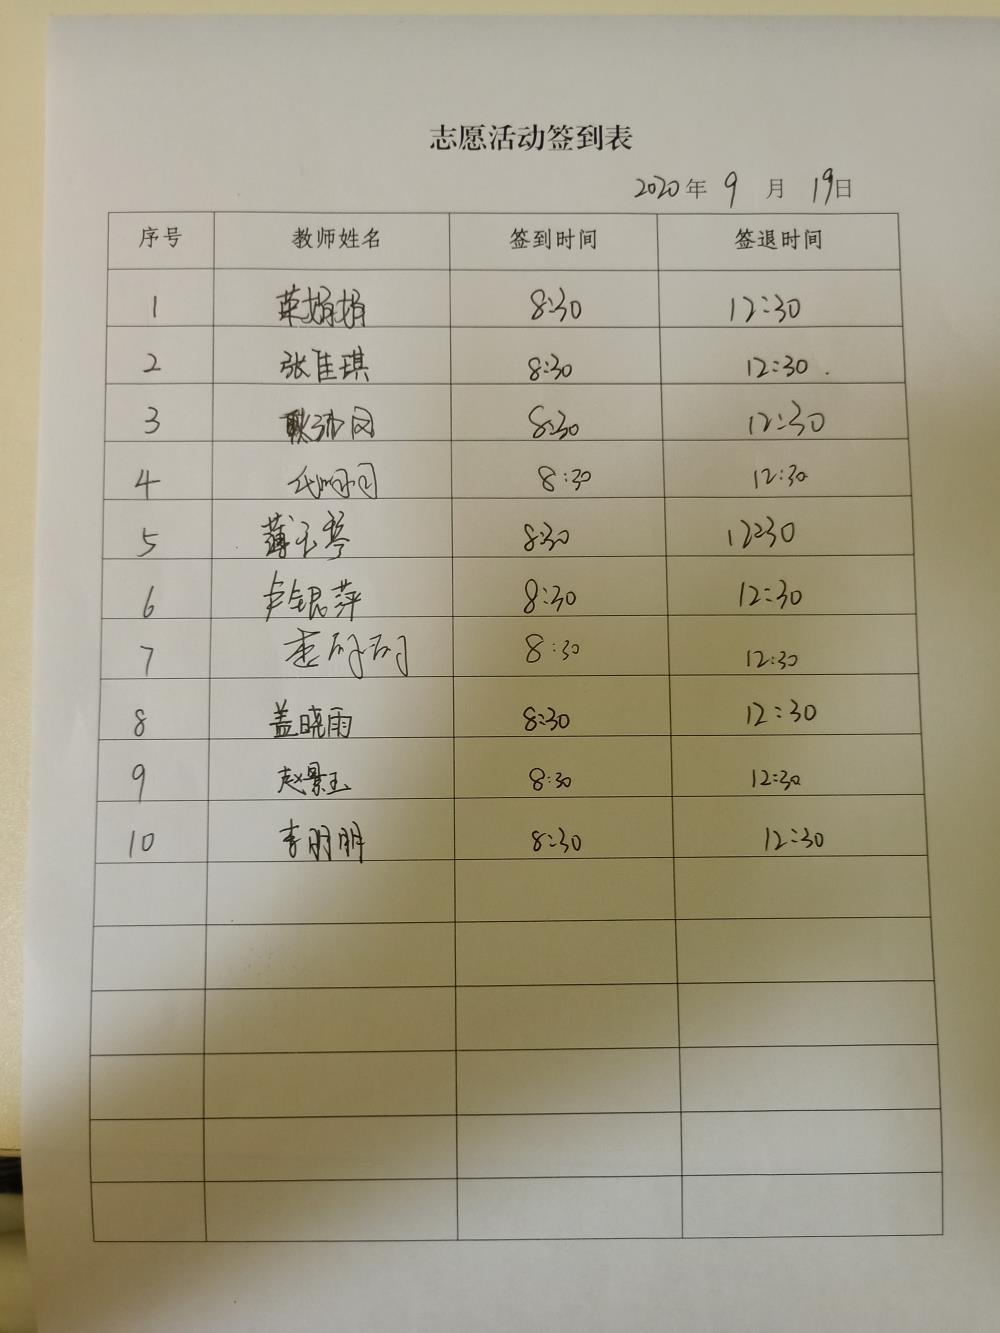 志愿活动签到表
2020年 9 月 19日
序号 教师姓名 签到时间 签退时间
1 8:30 12:30
2 张佳琪 8:30 12:30.
3 8:30 12:30
4 8:30 12:30
5 薄玉琴 8:30 12:30
6 卢银萍 8:30 12:30
7 8:30 12:30
8 盖晓雨 8:30 12:30
9 赵景玉 8:30 12:30
10 李明明 8:30 12:30